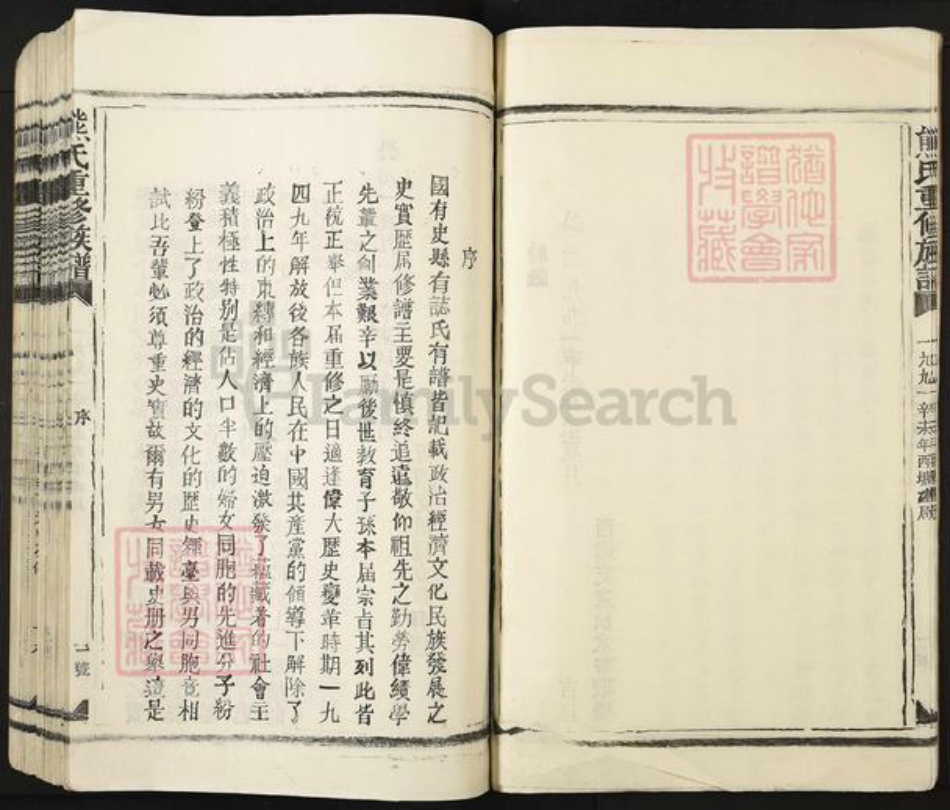 熊氏重修族譜
一九九一辛未年
序
國有史縣有誌氏有譜皆記載政治經濟文化民族發展之
史實歷屆修譜主要是慎終追遠敬仰祖先之勤勞偉績學
先輩之創業艱辛以勵後世教育子孫本屆宗旨其列此皆
正統正舉但本屆重修之日適逢偉大歷史變革時期一九
四九年解放後各族人民在中國共產黨的領導下解除了
政治上的束縛和經濟上的壓迫激發了蘊藏著的社會主
義積極性特別是佔人口半數的婦女同胞的先進分子紛
紛登上了政治的經濟的文化的歷史舞臺與男同胞競相
試比吾輩必須尊重史實故爾有男女同載史册之舉這是
熊氏重修族譜
序
一號
猶他家
譜學會
收藏
FamilySearch